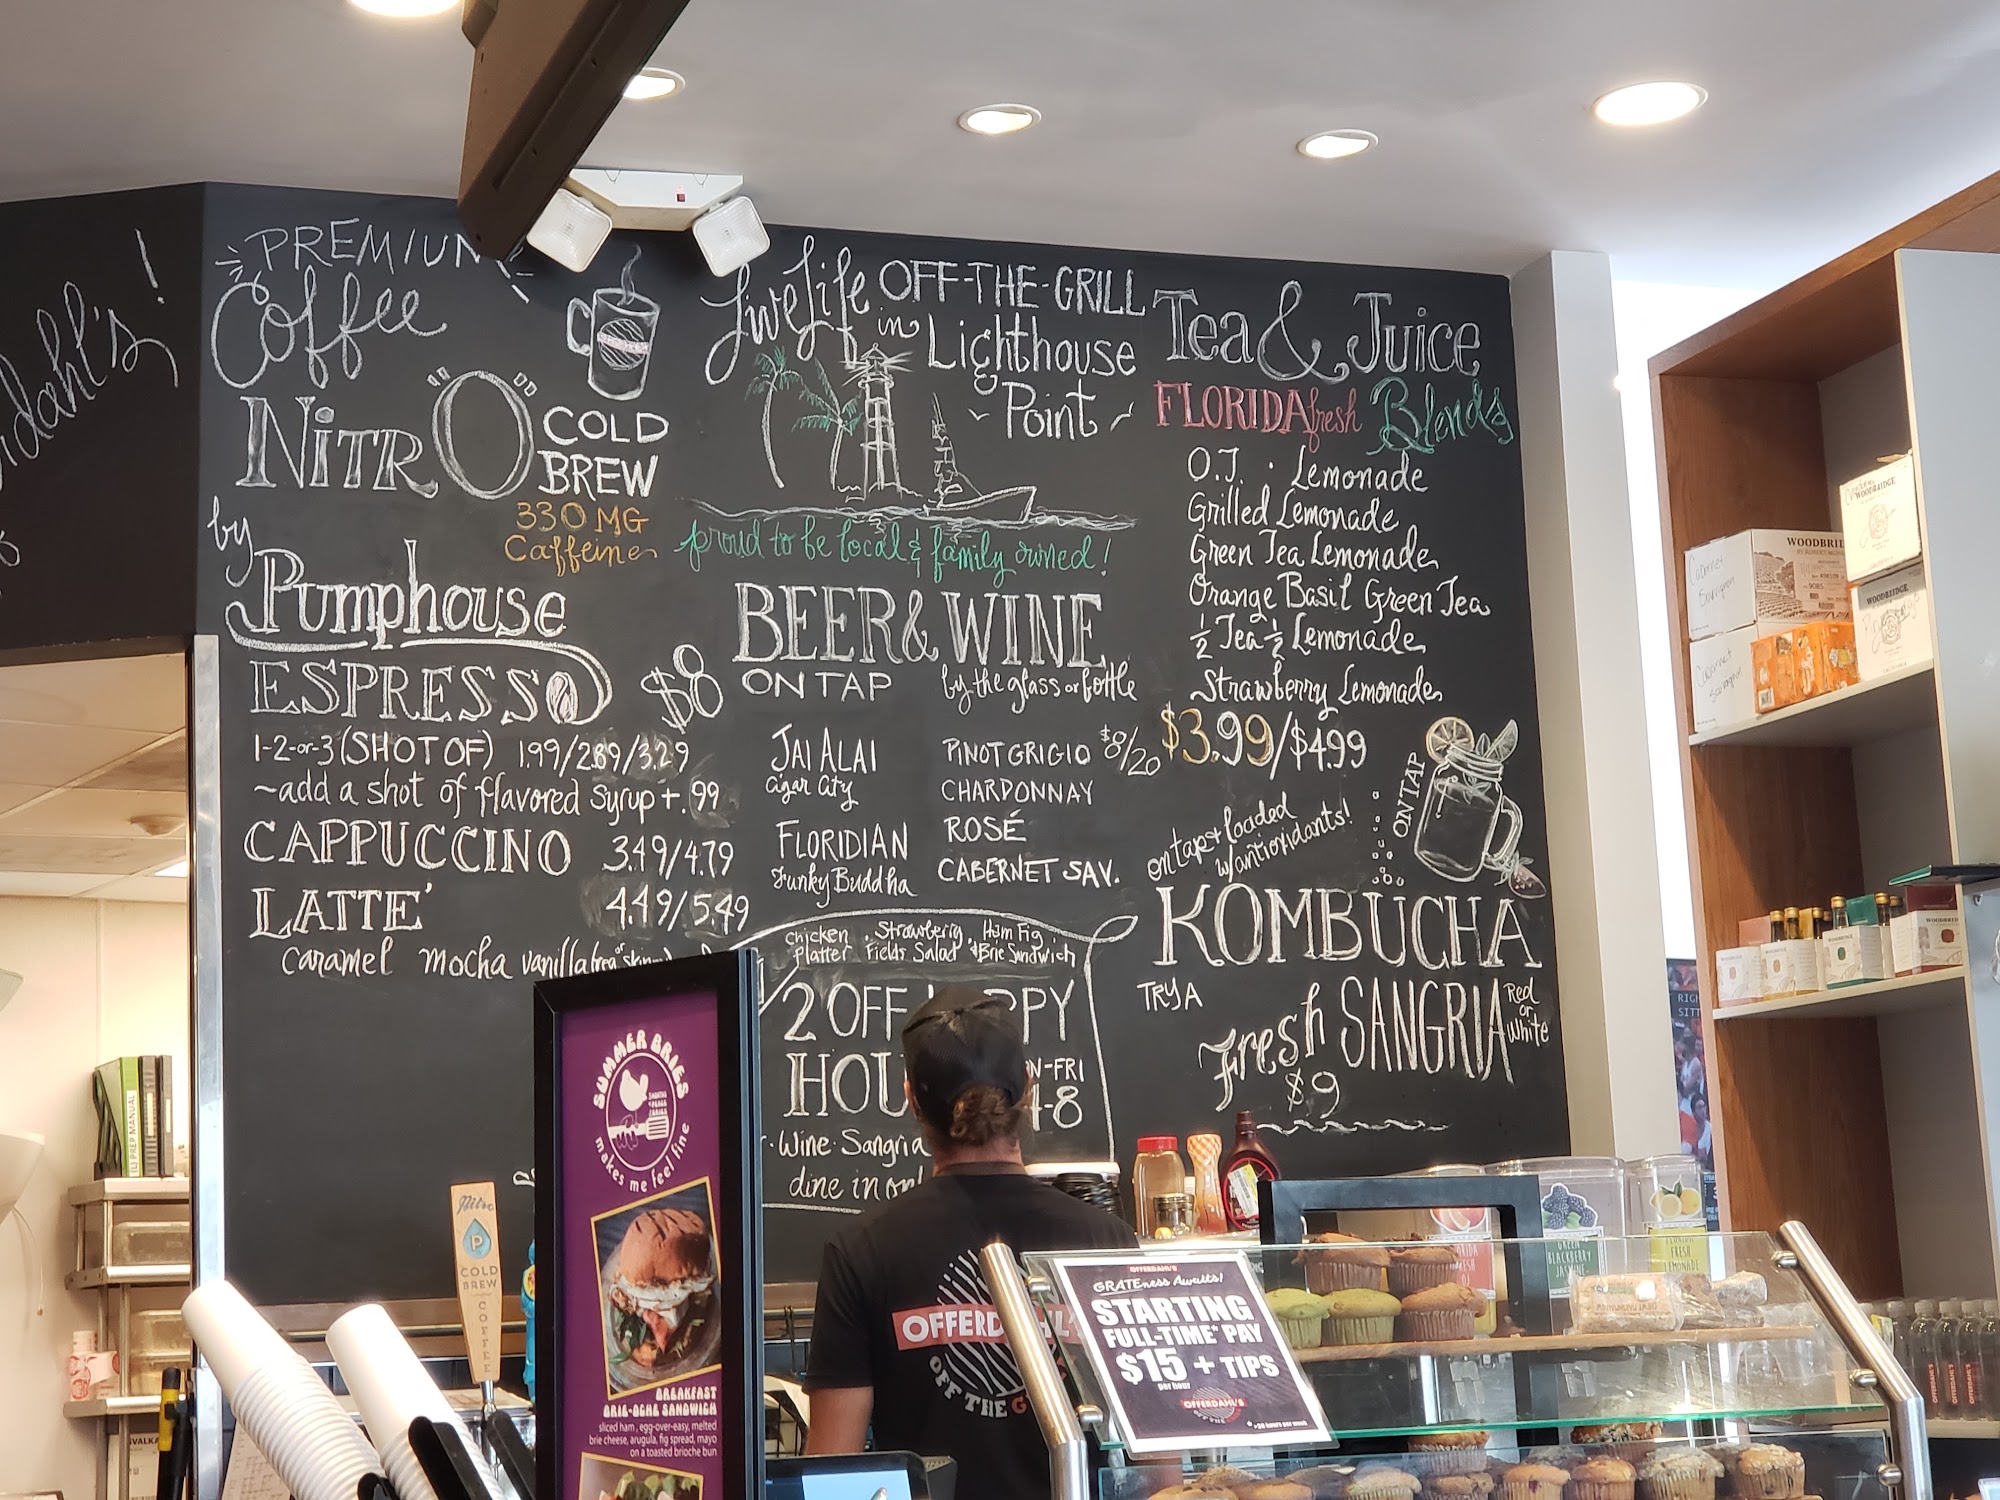 PREMIUM
Coffee
NITRO
COLD
BREW
330 MG
Caffeine
by
Pumphouse
ESPRESSO
1-2-or-3 (SHOT OF) 1.99/2.69/3.29
~add a shot of flavored syrup +.99
CAPPUCCINO 3.49/4.79
LATTE' 4.49/5.49
caramel mocha vanilla
Live Life OFF-THE-GRILL
in Lighthouse
~ Point ~
proud to be local & family owned!
$8
BEER & WINE
ON TAP
by the glass or bottle
JAI ALAI
Cigar City
FLORIDIAN
Funky Buddha
PINOT GRIGIO $8/20
CHARDONNAY
ROSÉ
CABERNET SAV.
Chicken Platter
Strawberry Fields Salad
Ham Fig & Brie Sandwich
1/2 OFF
HOU
-FRI
-8
Wine · Sangria
dine in
Tea & Juice
FLORIDA fresh Blends
O.J. · Lemonade
Grilled Lemonade
Green Tea Lemonade
Orange Basil Green Tea
½ Tea ½ Lemonade
Strawberry Lemonade
$3.99/$4.99
ON TAP
on tap & loaded
w/antioxidants!
KOMBUCHA
TRY A
Fresh SANGRIA
Red
or
White
$9
SUMMER BRIES
makes me feel fine
BREAKFAST
BRIE-OCHE SANDWICH
sliced ham, egg-over-easy, melted
brie cheese, arugula, fig spread, mayo
on a toasted brioche bun
Nitro
COLD
BREW
COFFEE
PREP MANUAL
OFFERDAHL'S
OFF THE G
OFFERDAHL'S
GRATEness Awaits!
STARTING
FULL-TIME* PAY
$15 + TIPS
per hour
OFFERDAHL'S
GREEN
BLACKBERRY
JASMINE
FLORIDA
FRESH
LEMONADE
WOODBRIDGE
Cabernet
Sauvignon
WOODBRIDGE
WOODBRIDGE
Cabernet
Sauvignon
WOODBRIDGE